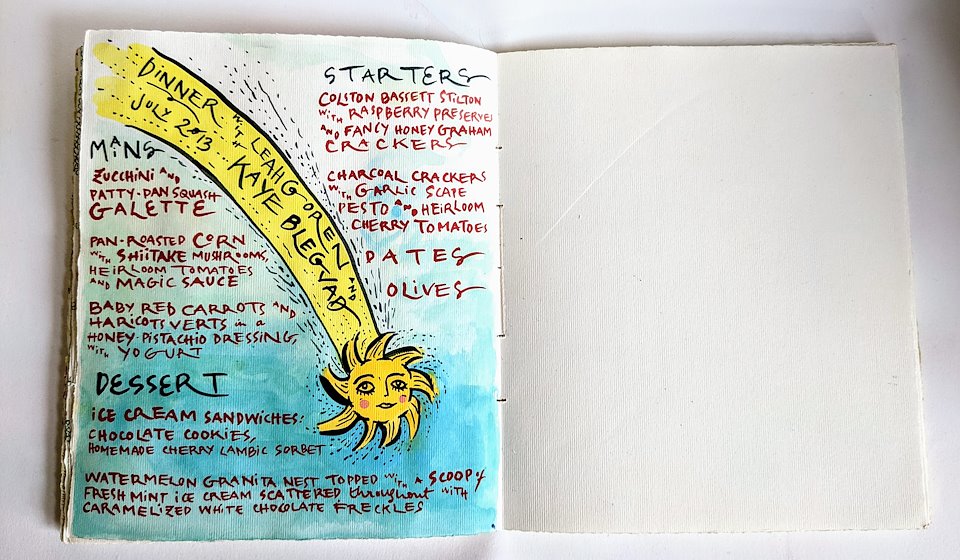 DINNER WITH LEAH GOREN AND
JULY 2013 KAYE BLEGVAD
STARTERS
COLSTON BASSETT STILTON
WITH RASPBERRY PRESERVES
AND FANCY HONEY GRAHAM
CRACKERS
CHARCOAL CRACKERS
WITH GARLIC SCAPE
PESTO AND HEIRLOOM
CHERRY TOMATOES
DATES
OLIVES
MAINS
ZUCCHINI AND
PATTY-PAN SQUASH
GALETTE
PAN-ROASTED CORN
WITH SHIITAKE MUSHROOMS,
HEIRLOOM TOMATOES
AND MAGIC SAUCE
BABY RED CARROTS AND
HARICOTS VERTS in a
HONEY-PISTACHIO DRESSING,
WITH YOGURT
DESSERT
iCE CREAM SANDWICHES:
CHOCOLATE COOKIES,
HOMEMADE CHERRY LAMBIC SORBET
WATERMELON GRANITA NEST TOPPED WITH A SCOOP of
FRESH MINT ICE CREAM SCATTERED throughout WITH
CARAMELIZED WHITE CHOCOLATE FRECKLES